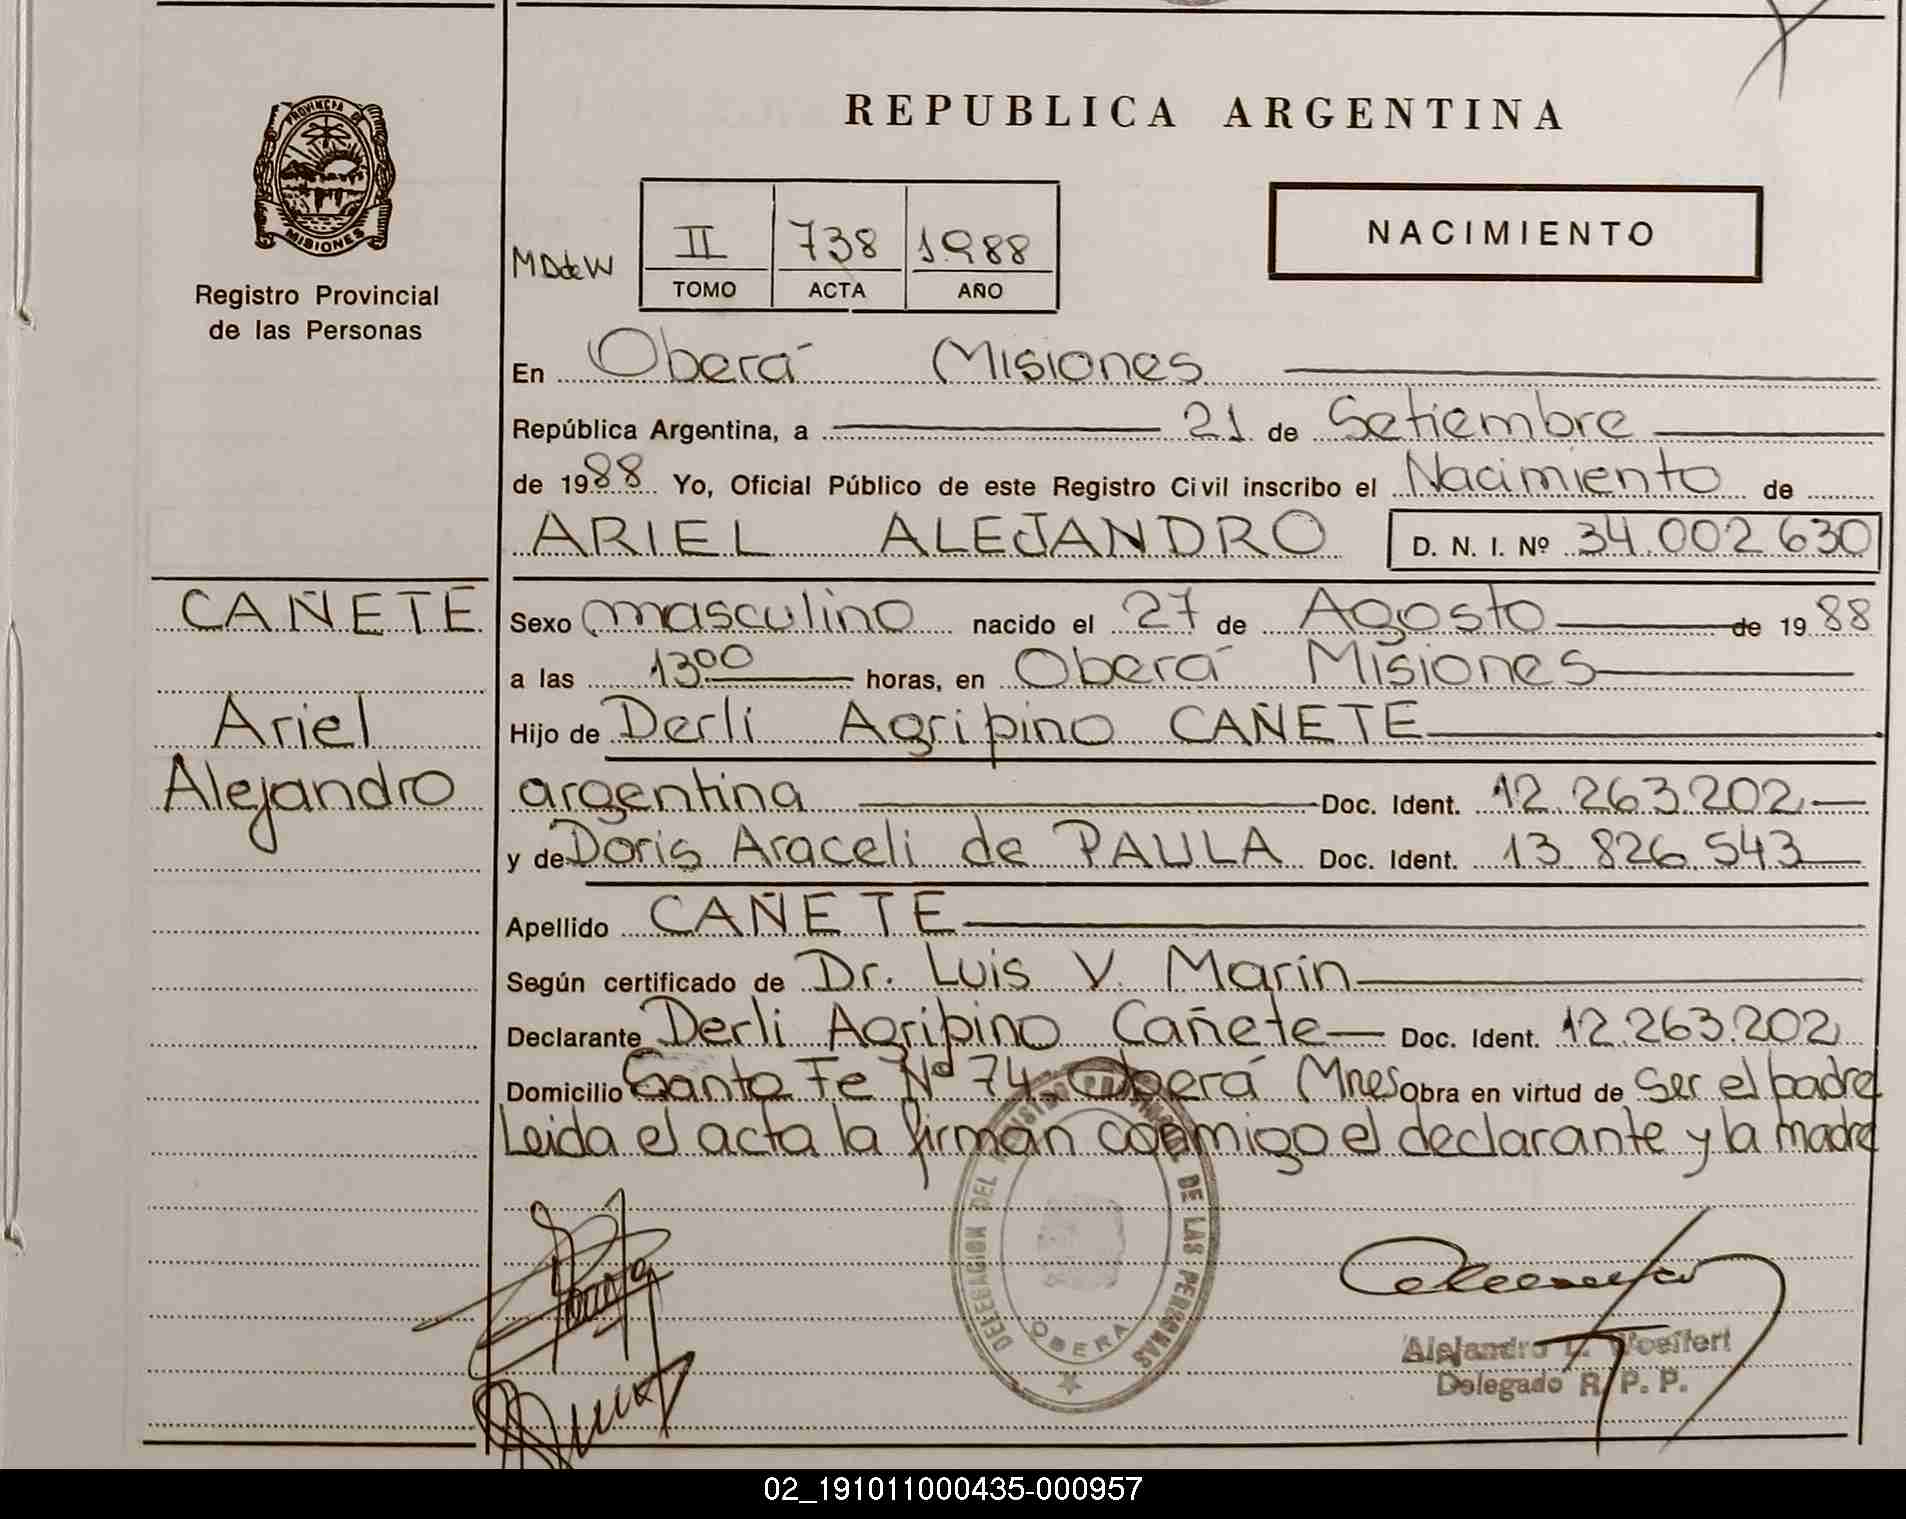 PROVINCIA DE
MISIONES
Registro Provincial
de las Personas
CAÑETE
Ariel
Alejandro
REPUBLICA ARGENTINA
MDdeW
II 738 1988
TOMO ACTA AÑO
NACIMIENTO
En Oberá Misiones
República Argentina, a 21 de Setiembre
de 1988 Yo, Oficial Público de este Registro Civil inscribo el Nacimiento de
ARIEL ALEJANDRO D. N. I. Nº 34.002 630
Sexo masculino nacido el 27 de Agosto de 1988
a las 13⁰⁰ horas, en Oberá Misiones
Hijo de Derli Agripino CAÑETE
argentina Doc. Ident. 12.263.202
y de Doris Araceli de PAULA Doc. Ident. 13 826.543
Apellido CAÑETE
Según certificado de Dr. Luis V. Marin
Declarante Derli Agripino Cañete Doc. Ident. 12.263.202
Domicilio Santa Fe Nº 74 Oberá Mnes Obra en virtud de ser el padre
Leida el acta la firman conmigo el declarante y la madre
DELEGACION DEL REGISTRO PROVINCIAL DE LAS PERSONAS
OBERA
Alejandro
Delegado R. P. P.
02_191011000435-000957